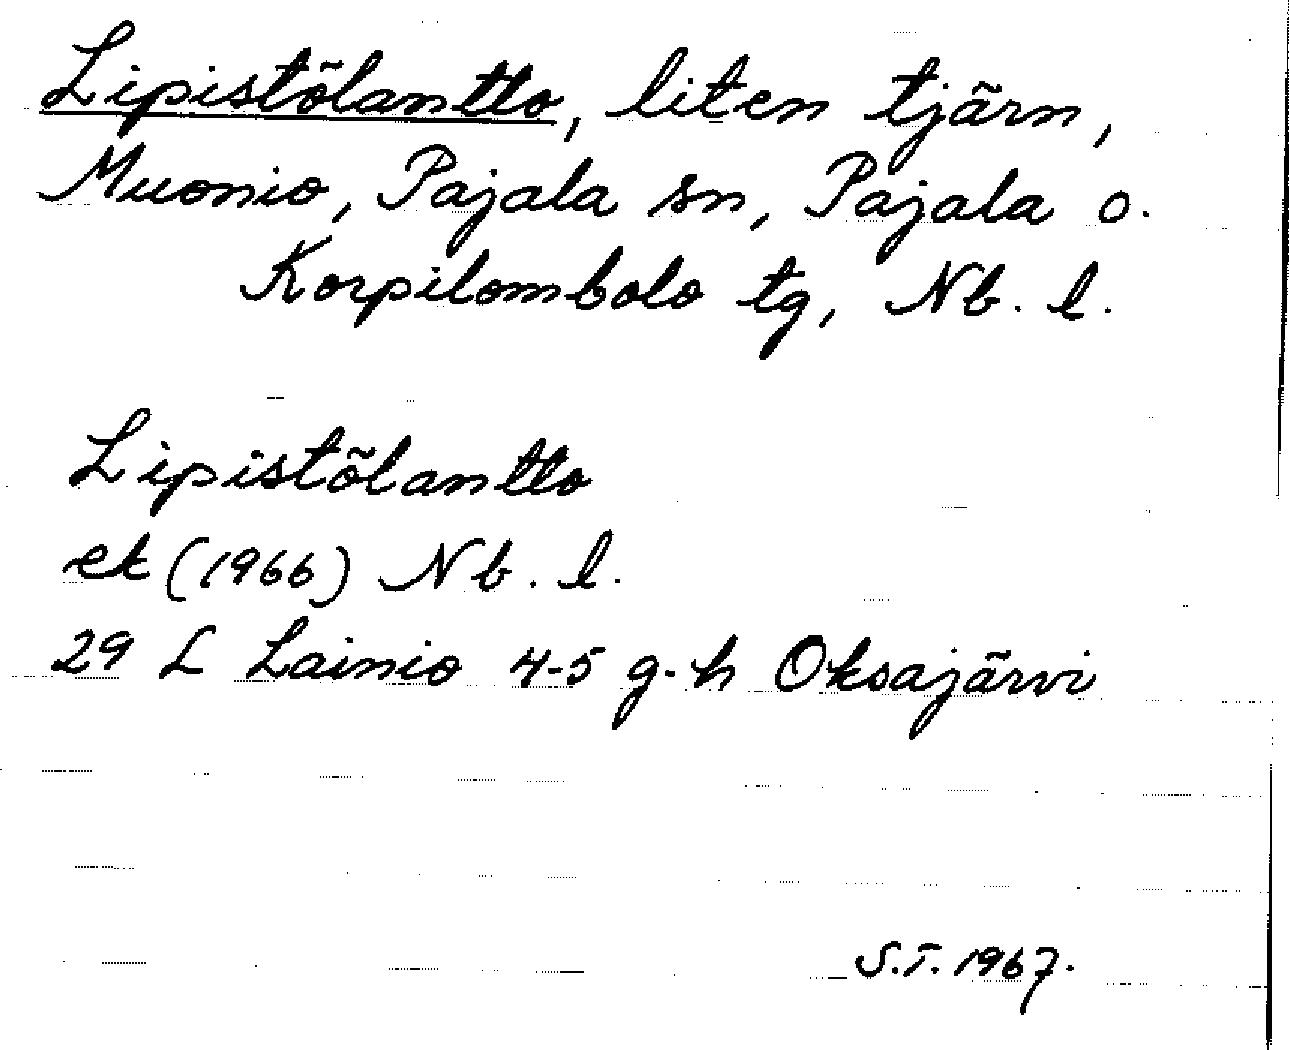 Lipistölantto, liten tjärn,
Muonio, Pajala sn, Pajala o.
Korpilombolo tg, Nb. l.
Lipistölantto
ek (1966) Nb. l.
29 L Lainio 4-5 g-h Oksajärvi
S.T. 1967.